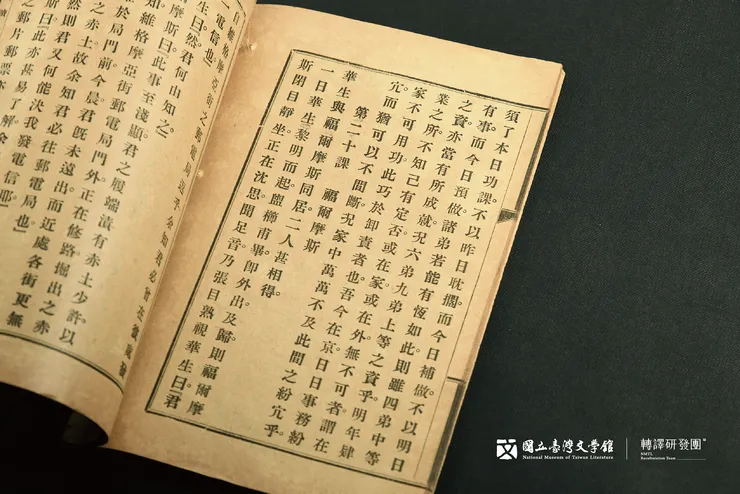 須了本日功課。不以昨日耽擱。而今日補做。不以明日
有事。而今日預做。諸弟若能有恆如此。則雖四弟中等
之資。亦當有所成就。況六弟九弟上等之資乎。明年肄
業之所。不知已有定否。或在家。或在外。無不可者。謂在
家不可用功。此巧於卸責者也。吾今在京。日日事務紛
冗。而猶可以不間斷。況家中萬萬不及此間之紛冗乎。
第二十課 福爾摩斯
華生與福爾摩斯同居。二人甚相得。
一日華生黎明而起。盥櫛甫畢。卽外出。及歸。則福爾摩
斯閉目靜坐。正在沈思。聞足音。乃張目熟視華生曰「君
自維格摩亞街之郵電局返乎。余知君必曾在彼處發
一電信也」
生曰「然。君何由知之」
摩斯曰「此事至淺顯。君之履端漬有赤土少許。以
知維格摩亞街郵電局門外。正在修路。掘出之赤
於局門前。今晨君旣未遠出。而近處各街更無
之赤土。故余知君必往郵電局也」
然則君又何能決我發電信耶」
斯曰「此亦甚易了解。
之郵片郵票
國立臺灣文學館
National Museum of Taiwan Literature
轉譯研發團
NMTL